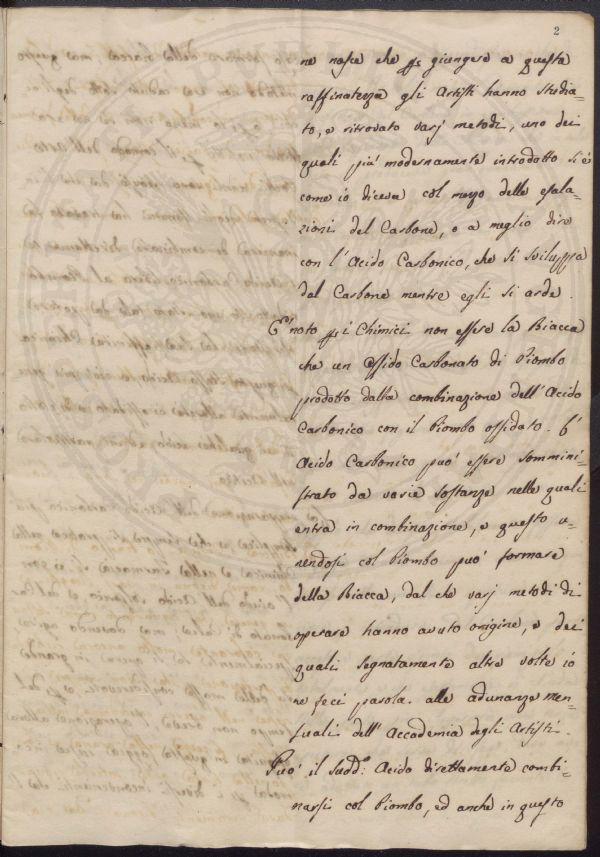 2
ne nasce che per giungere a questa
raffinatezza gli Artisti hanno studia-
to, e ritrovato varj metodi, uno dei
quali più modernamente introdotto si è
come io diceva col mezzo delle esala-
zioni del Carbone, o a meglio dire
con l'Acido Carbonico, che si sviluppa
dal Carbone mentre egli si arde.
E' noto per i Chimici non essere la Biacca
che un Ossido Carbonato di Piombo
prodotto dalla combinazione dell'Acido
Carbonico con il Piombo ossidato. L'
Acido Carbonico può essere sommini-
strato da varie sostanze nelle quali
entra in combinazione, e questo u-
nendosi col Piombo può formare
della Biacca, dal che varj metodi di
operare hanno avuto origine, e dei
quali segnatamente altre volte io
ne feci parola alle adunanze men-
suali dell'Accademia degli Artisti.
Può il Sudd.o Acido direttamente combi-
narsi col Piombo, ed anche in questo